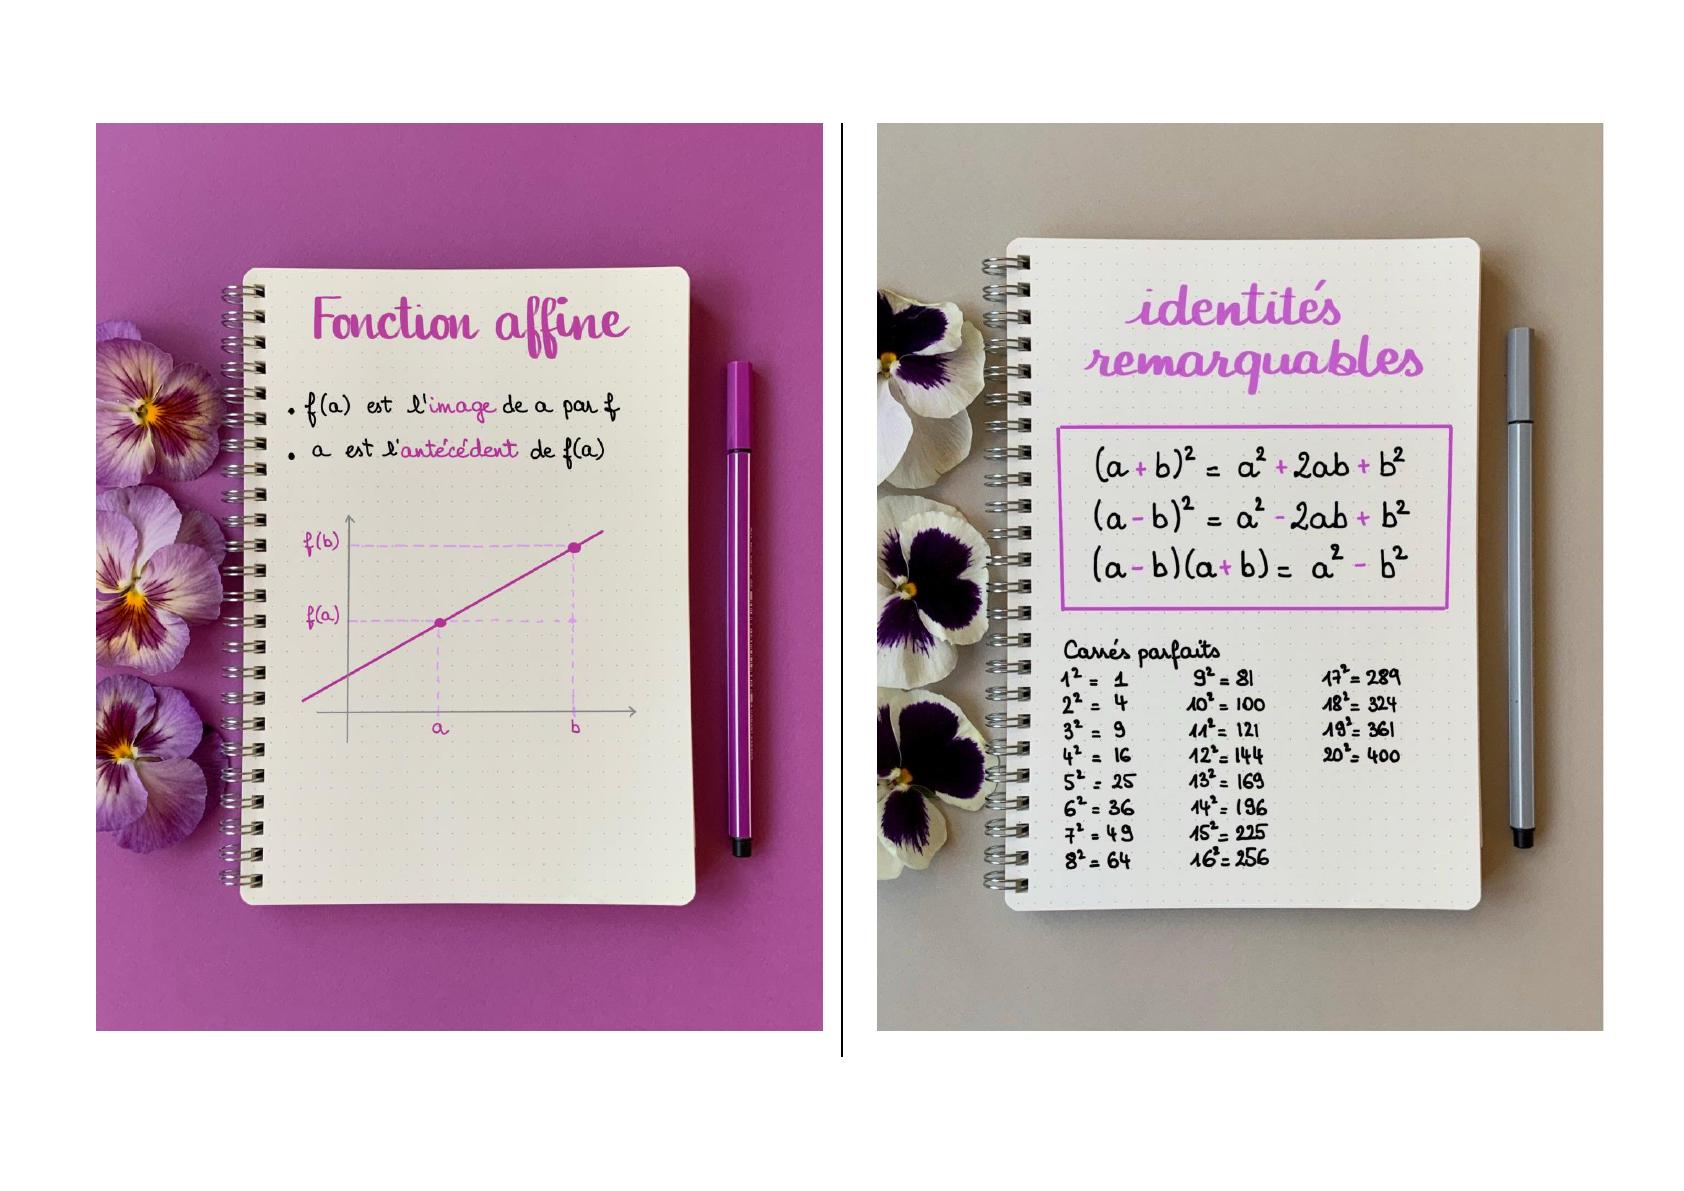 Fonction affine
• f(a) est l'image de a par f
• a est l'antécédent de f(a)
f(b)
f(a)
a b
identités
remarquables
(a + b)² = a² + 2ab + b²
(a - b)² = a² - 2ab + b²
(a - b)(a + b) = a² - b²
Carrés parfaits
1² = 1
2² = 4
3² = 9
4² = 16
5² = 25
6² = 36
7² = 49
8² = 64
9² = 81
10² = 100
11² = 121
12² = 144
13² = 169
14² = 196
15² = 225
16² = 256
17² = 289
18² = 324
19² = 361
20² = 400